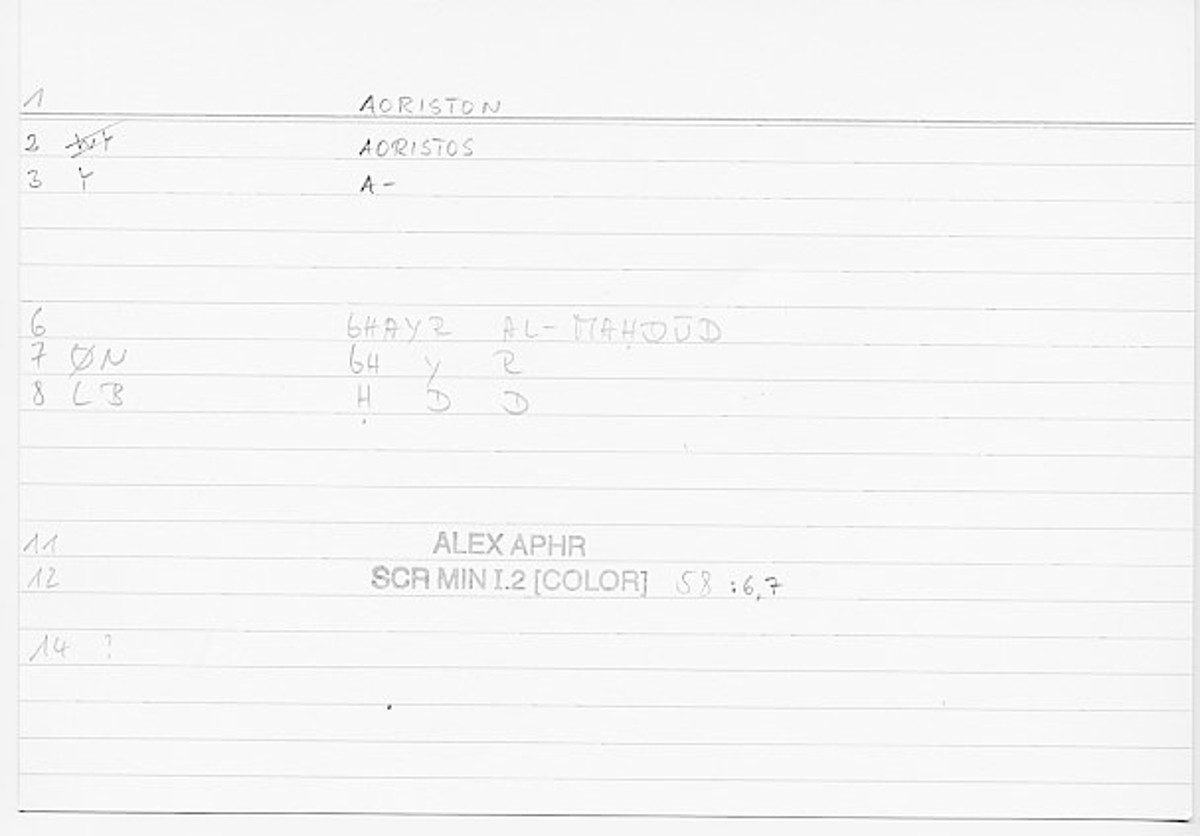 1 AORISTON
2 AORISTOS
3 Y A-
6 GHAYR AL-MAḤDŪD
7 ØN GH Y R
8 LB Ḥ D D
11 ALEX APHR
12 SCR MIN I.2 [COLOR] 58 :6,7
14 ?